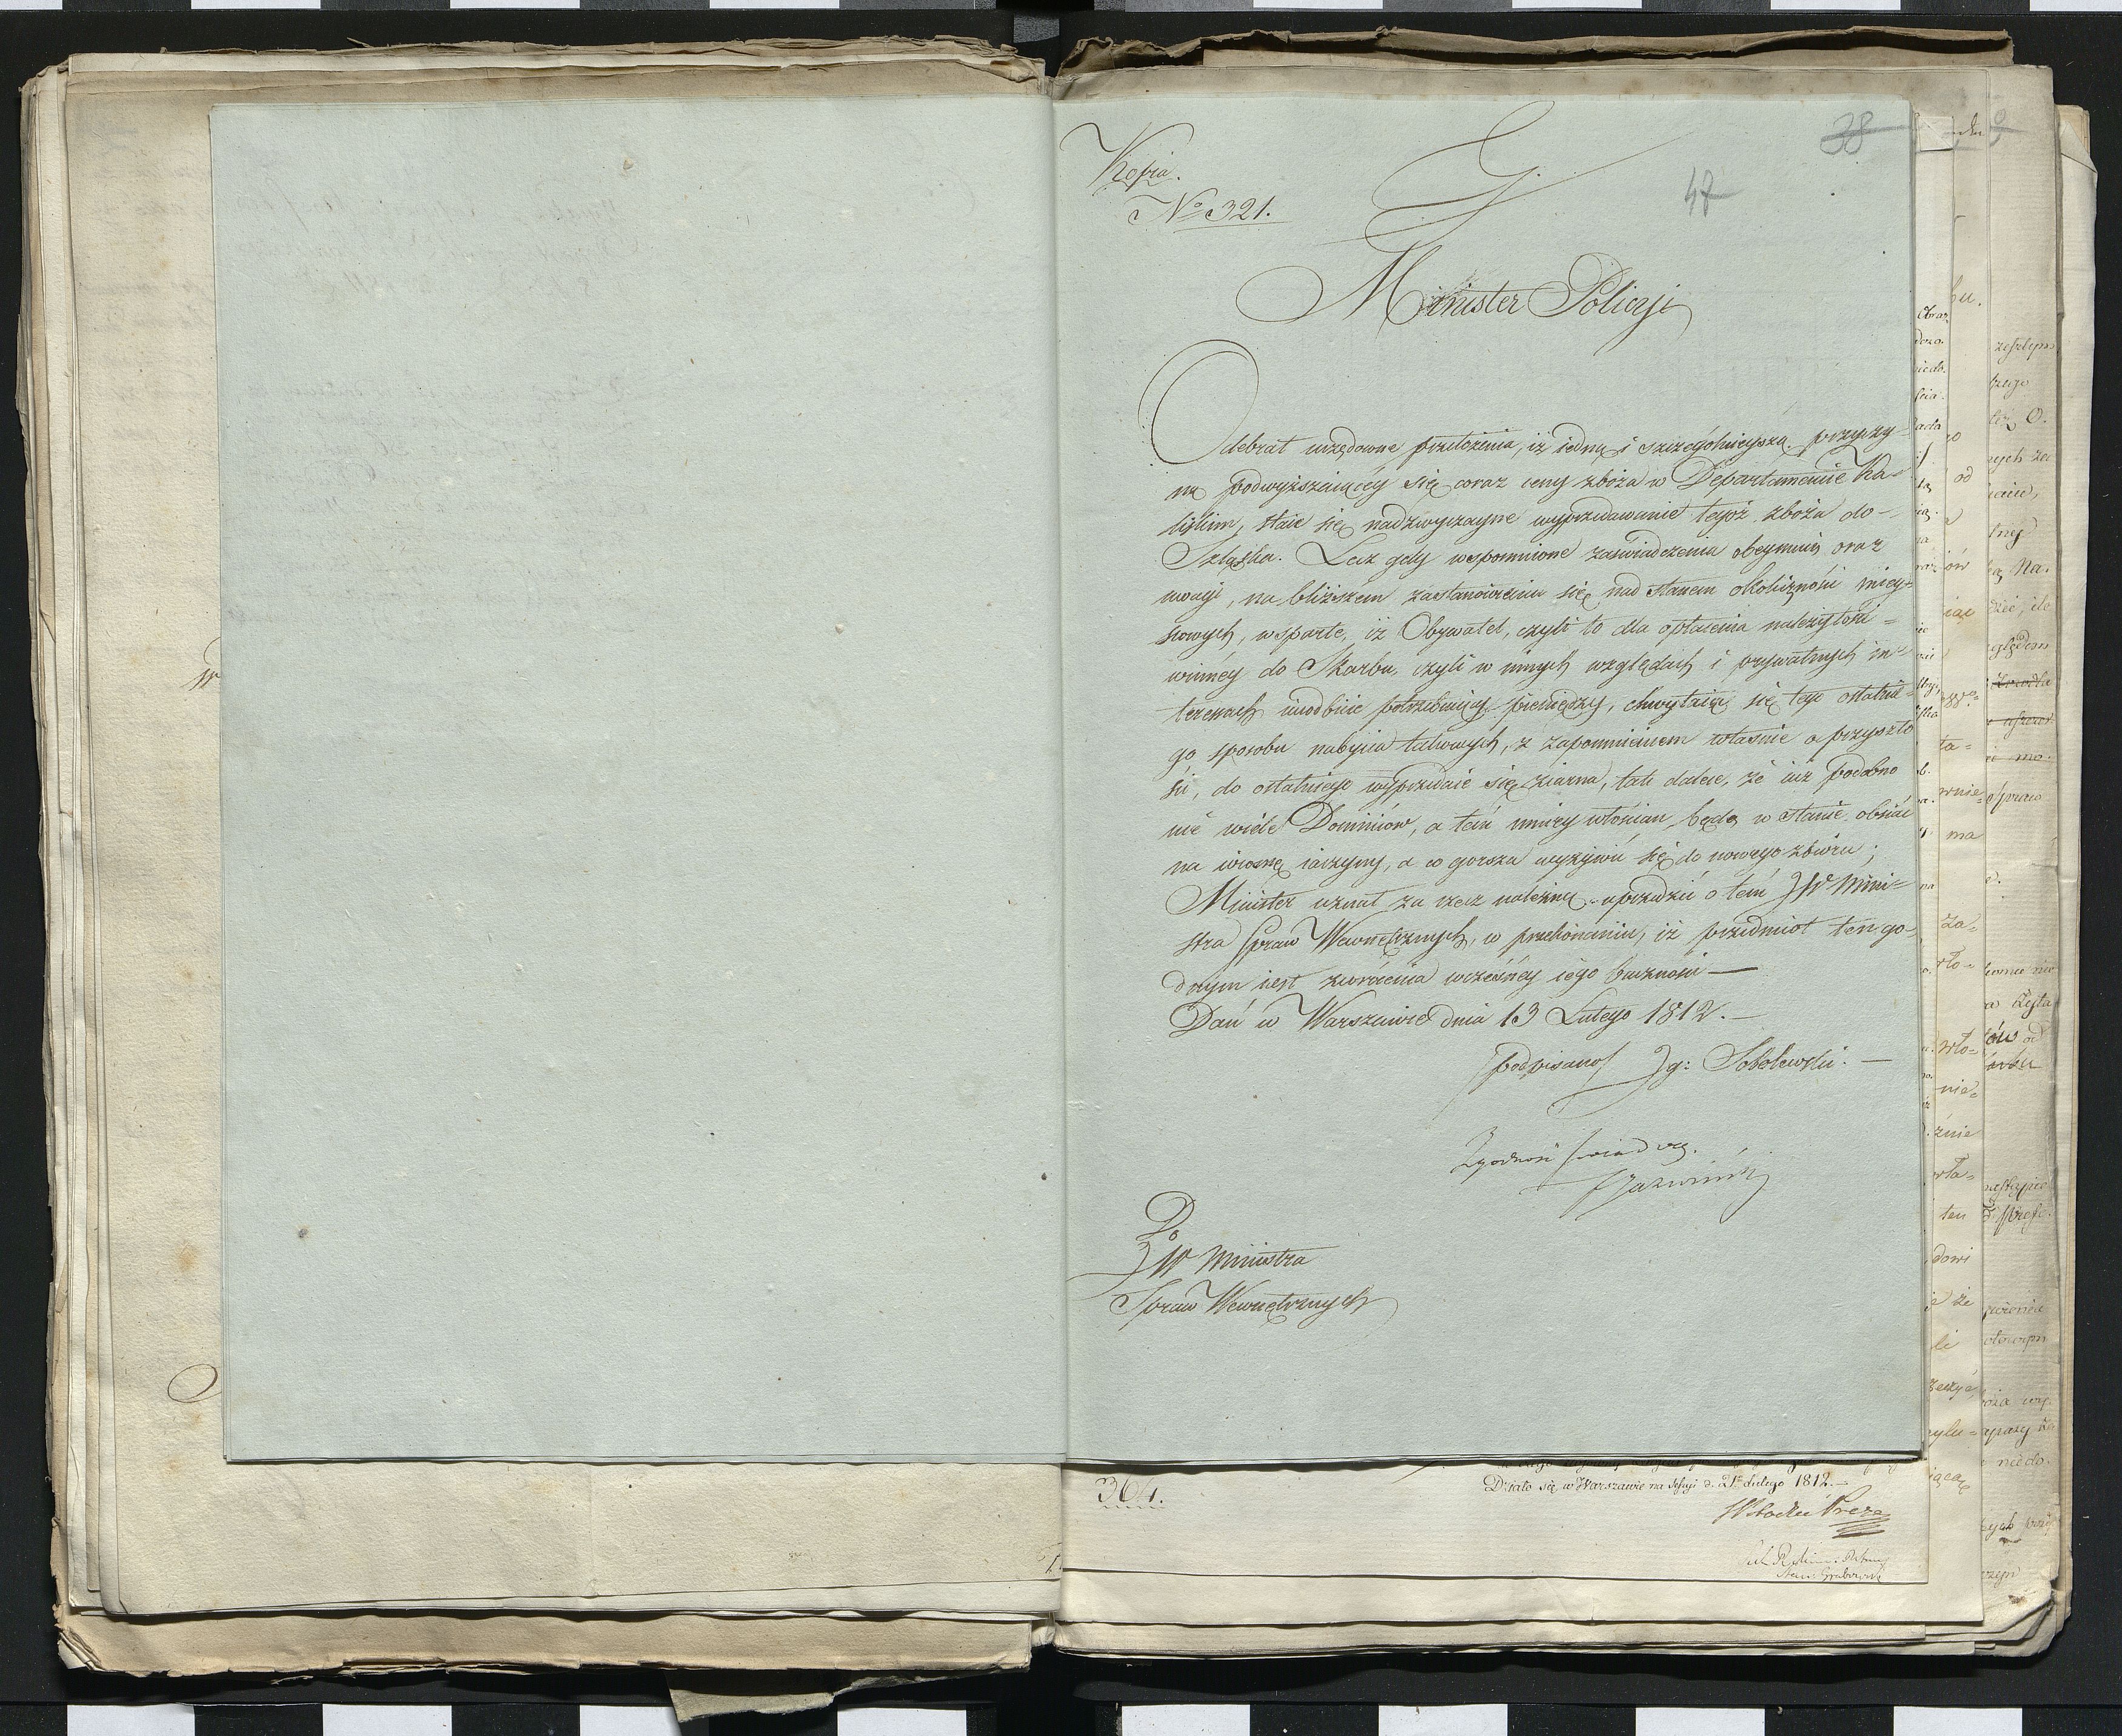 Kopia.
No 321.
38
47
Minister Policyi
Odebrał urzędowne przełożenia, iż iedną i szczegolnieyszą przyczy-
ną podwyższaiącéy się coraz ceny zboża w Departamencie Ka-
liskim, staie się nadzwyczayne wyprzedawanie tegoż zboża do
Szląska. Lecz gdy wspomnione zaświadczenia obeymuią oraz
uwagi, na bliższem zastanowieniu się nad stanem okoliczności miey-
scowych, wsparte, iż Obywatel, czyli to dla opłacenia należytości
winnéy do Skarbu, czyli w innych względach i prywatnych in-
teressach potrzebuiąc pieniędzy, chwytaiąc się tego ostatnie-
go sposobu nabycia takowych, z zapomnieniem właśnie o przyszło
ści, do ostatniego wyprzedaie się ziarna, tak dalece, że iuż podobno
nie wiele Dominiow, a tem mniéy włościan, będą w stanie obsiać
na wiosnę iarzyny, a co gorsza wyżywić się do nowego zbioru;
Minister uznał za rzecz należną uprzedzić o tem JW Mini-
stra Spraw Wewnętrznych, w przekonaniu, iż przedmiot ten go-
dnym iest zwrócenia wcześnéy iego baczności —
Dań w Warszawie dnia 13 Lutego 1812. —
/podpisano/ Ig: Sobolewski. —
Zgodność świadczy.
Do
JW Ministra
Spraw Wewnętrznych
364.
Działo się w Warszawie na Sessyi d. 21 Lutego 1812. —